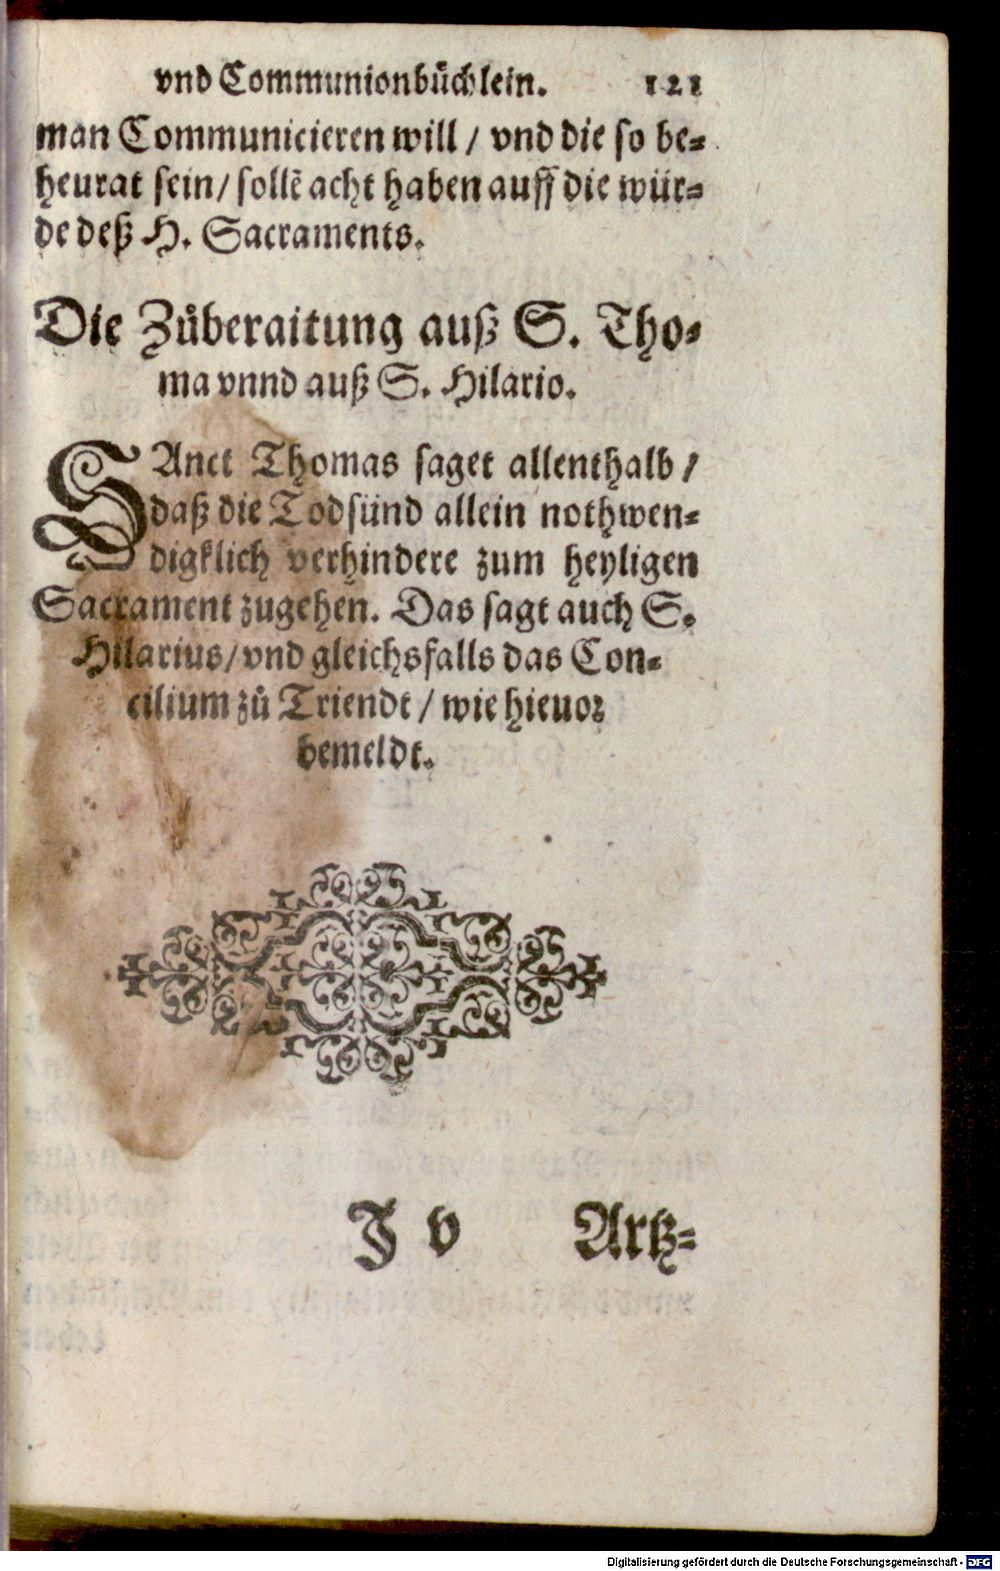 vnd Communionbuͤchlein. 121
man Communicieren will / vnd die so be-
heurat sein / sollẽ acht haben auff die wür-
de deß H. Sacraments.
Die Zůberaitung auß S. Tho-
ma vnnd auß S. Hilario.
SAnct Thomas saget allenthalb /
daß die Todsünd allein nothwen-
digklich verhindere zum heyligen
Sacrament zugehen. Das sagt auch S.
Hilarius / vnd gleichsfalls das Con-
cilium zů Triendt / wie hieuor
bemeldt.
J v Artz-
Digitalisierung gefördert durch die Deutsche Forschungsgemeinschaft - DFG